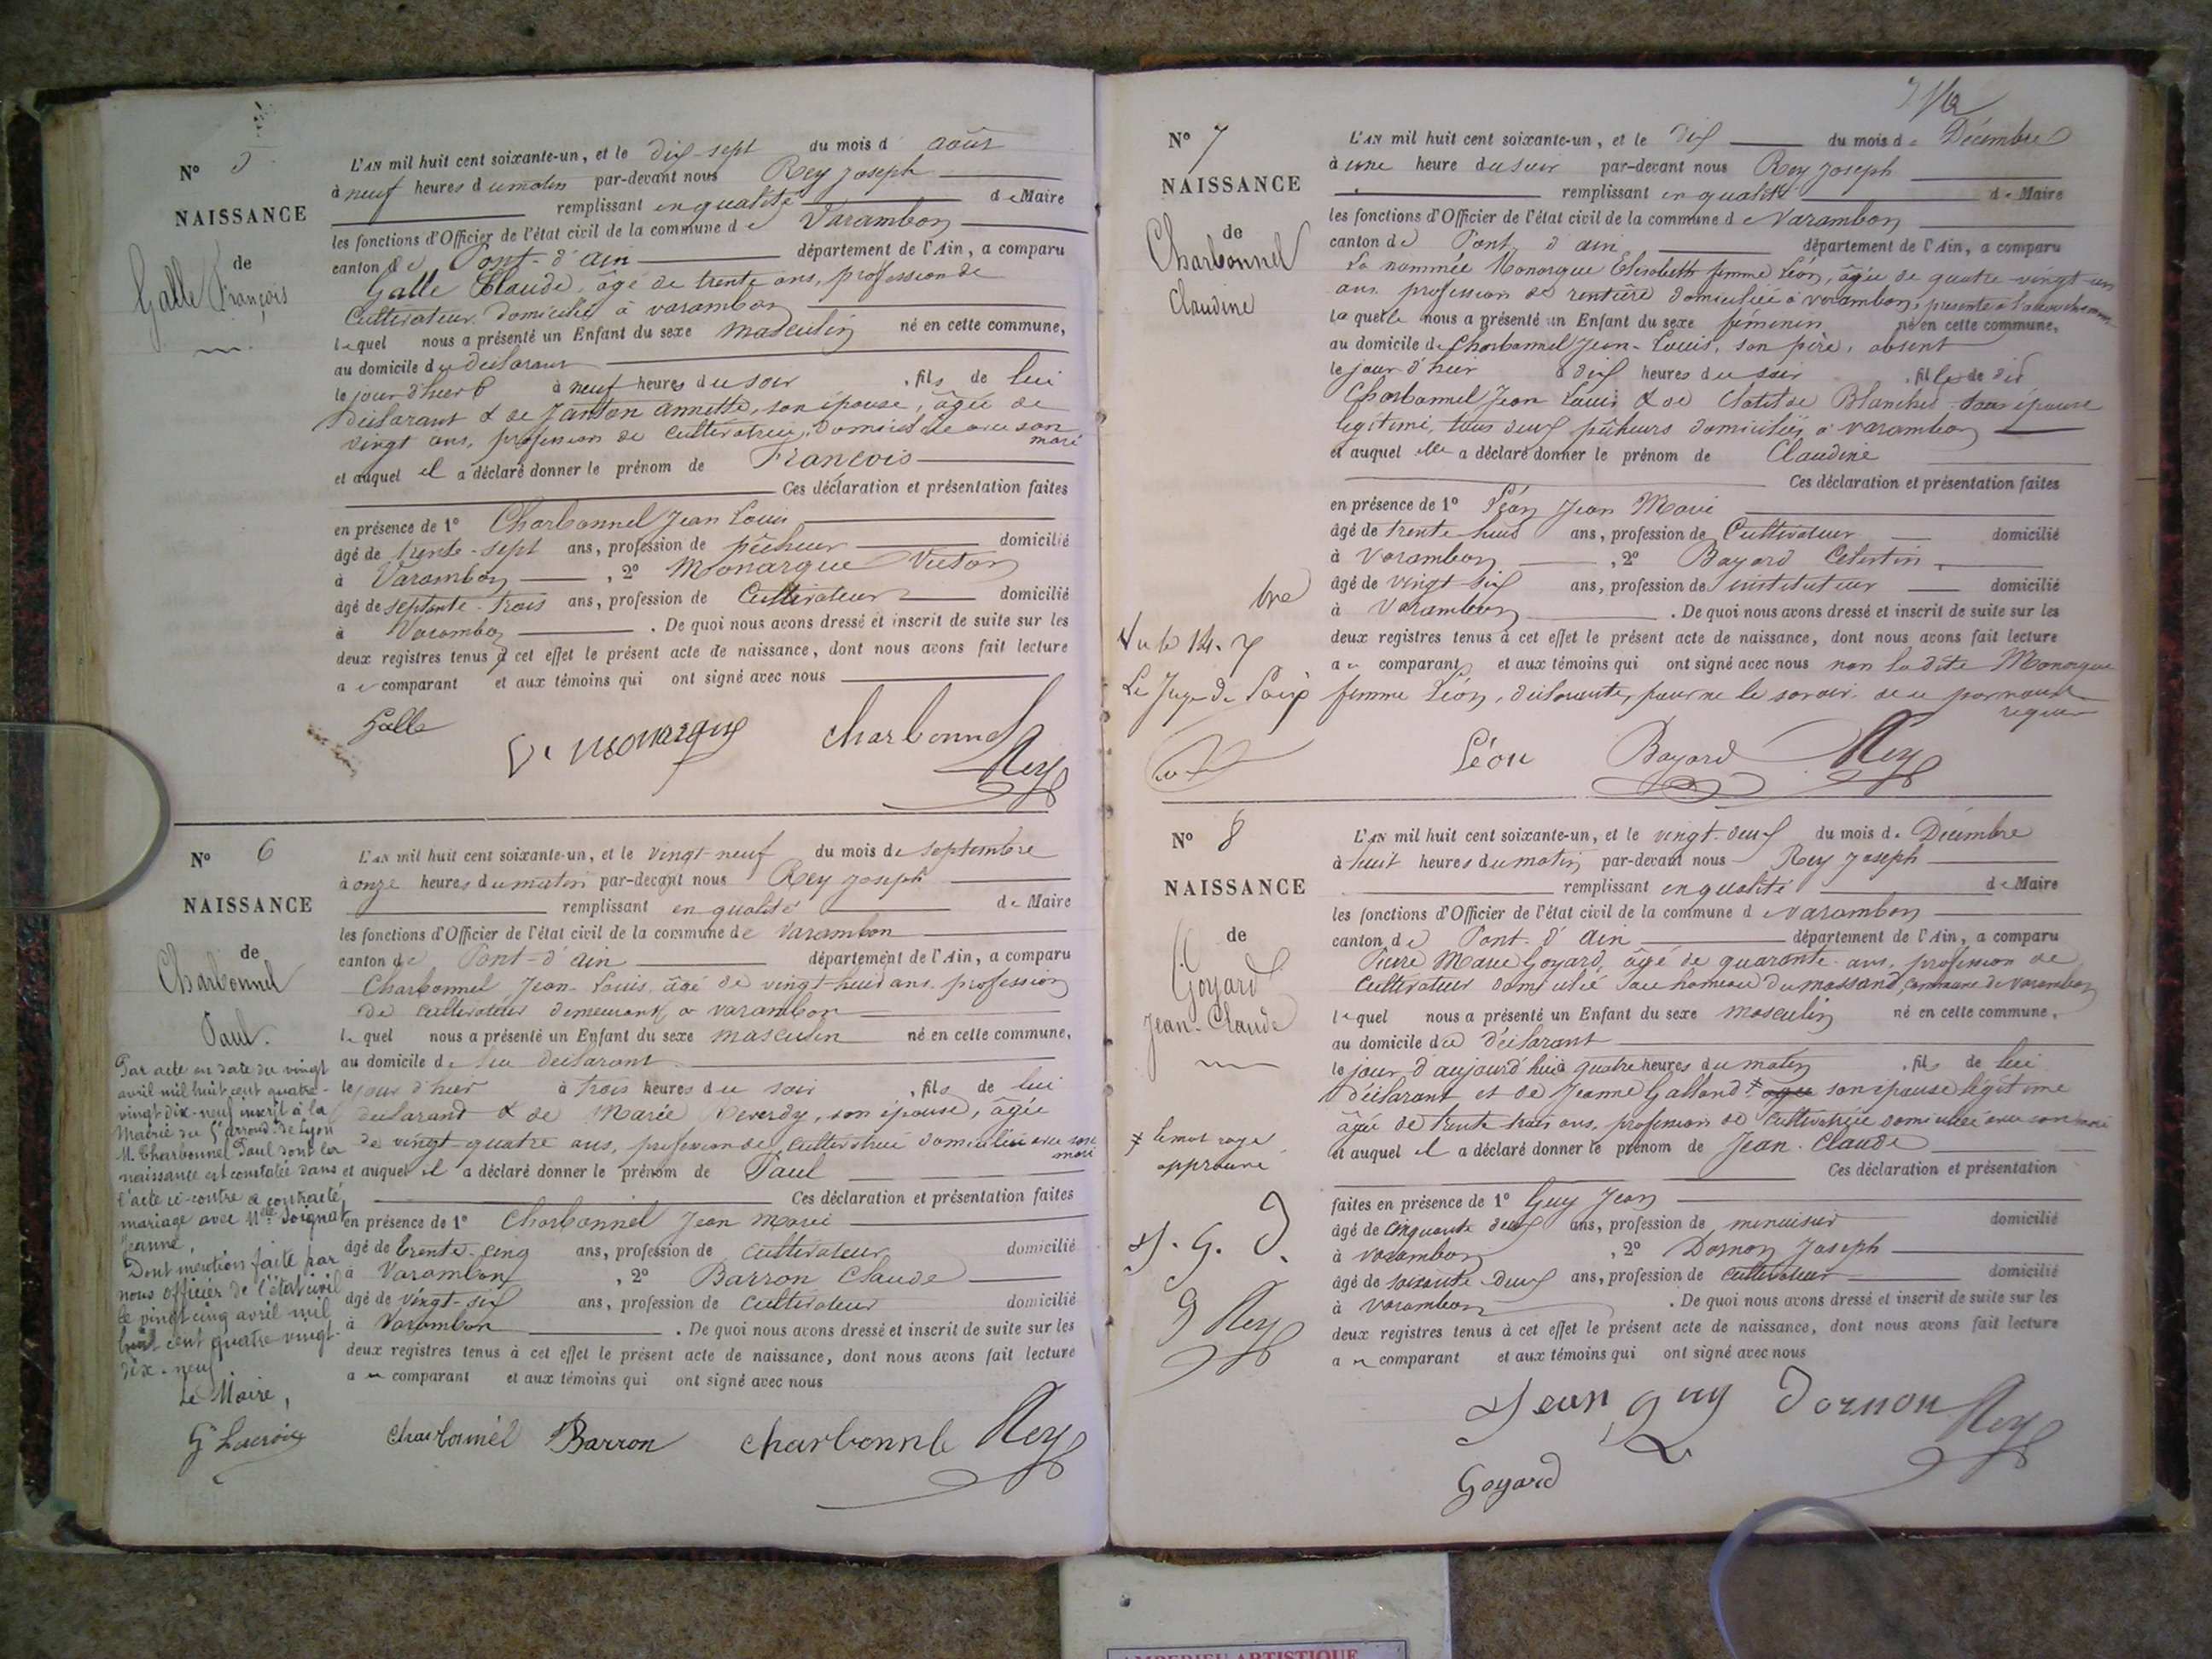 N° 5
NAISSANCE
de
Galle François
L'AN mil huit cent soixante-un, et le dix-sept du mois d août
à neuf heures du matin par-devant nous Rey Joseph
remplissant en qualité de Maire
les fonctions d'Officier de l'état civil de la commune de Varambon
canton de Pont-d'ain département de l'Ain, a comparu
Galle Claude, âgé de trente ans, profession de
Cultivateur domicilié à varambon
lequel nous a présenté un Enfant du sexe masculin né en cette commune,
au domicile du déclarant
le jour d'hier à neuf heures du soir, fils de lui
Déclarant & de Janton Annette, son épouse, âgée de
vingt ans, profession de cultivatrice, domiciliée avec son
mari
et auquel il a déclaré donner le prénom de François
Ces déclaration et présentation faites
en présence de 1° Charbonnel Jean Louis
âgé de trente-sept ans, profession de pêcheur domicilié
à Varambon, 2° Monarque Victor
âgé de septante-trois ans, profession de Cultivateur domicilié
à Varambon. De quoi nous avons dressé et inscrit de suite sur les
deux registres tenus à cet effet le présent acte de naissance, dont nous avons fait lecture
au comparant et aux témoins qui ont signé avec nous
Galle
V. monarque
Charbonnel
Rey
N° 6
NAISSANCE
de
Charbonnel
Paul.
L'AN mil huit cent soixante-un, et le vingt-neuf du mois de septembre
à onze heures du matin par-devant nous Rey Joseph
remplissant en qualité de Maire
les fonctions d'Officier de l'état civil de la commune de Varambon
canton de Pont-d'ain département de l'Ain, a comparu
Charbonnel Jean-Louis, âgé de vingt-huit ans, profession
de cultivateur demeurant à varambon
lequel nous a présenté un Enfant du sexe masculin né en cette commune,
au domicile de lui déclarant
le jour d'hier à trois heures du soir, fils de lui
déclarant & de Marie Reverdy, son épouse, âgée
de vingt-quatre ans, profession de cultivatrice domiciliée avec son
mari
et auquel il a déclaré donner le prénom de Paul
Ces déclaration et présentation faites
en présence de 1° Charbonnel Jean Marie
âgé de trente-cinq ans, profession de cultivateur domicilié
à Varambon, 2° Barron Claude
âgé de vingt-six ans, profession de cultivateur domicilié
à Varambon. De quoi nous avons dressé et inscrit de suite sur les
deux registres tenus à cet effet le présent acte de naissance, dont nous avons fait lecture
au comparant et aux témoins qui ont signé avec nous
Par acte en date du vingt
avril mil huit cent quatre-
vingt dix-neuf inscrit à la
Mairie du 5e arrond. de Lyon
M. Charbonnel Paul dont la
naissance est constatée dans
l'acte ci-contre a contracté
mariage avec Melle Soignat
Jeanne,
Dont mention faite par
nous officier de l'état civil
le vingt cinq avril mil
huit cent quatre vingt-
dix-neuf
Le Maire,
G Lacroix
Charbonnel
Barron
Charbonnel
Rey
N° 7
NAISSANCE
de
Charbonnel
Claudine
L'AN mil huit cent soixante-un, et le dix du mois de Décembre
à une heure du soir par-devant nous Rey Joseph
remplissant en qualité de Maire
les fonctions d'Officier de l'état civil de la commune de Varambon
canton de Pont d'ain département de l'Ain, a comparu
La nommée Monarque Elisabeth femme Léon, âgée de quatre-vingt-un
ans profession de rentière domiciliée à varambon, présente à l'accouchement
laquelle nous a présenté un Enfant du sexe féminin né en cette commune,
au domicile de Charbonnel Jean-Louis, son père, absent
le jour d'hier à dix heures du soir, fille de dit
Charbonnel Jean Louis & de Clotilde Blanchet son épouse
légitime, tous deux pêcheurs domiciliés à varambon
et auquel elle a déclaré donner le prénom de Claudine
Ces déclaration et présentation faites
en présence de 1° Léon Jean Marie
âgé de trente huit ans, profession de Cultivateur domicilié
à Varambon, 2° Bayard Célestin,
âgé de vingt-six ans, profession de instituteur domicilié
à Varambon. De quoi nous avons dressé et inscrit de suite sur les
deux registres tenus à cet effet le présent acte de naissance, dont nous avons fait lecture
au comparant et aux témoins qui ont signé avec nous non la dite Monarque
femme Léon, déclarante, pour ne le savoir de ce par nous
requise
bre
Vu le 14. 7
Le Juge de Paix
Léon
Bayard
Rey
N° 8
NAISSANCE
de
Goyard
Jean-Claude
L'AN mil huit cent soixante-un, et le vingt-deux du mois de Décembre
à huit heures du matin par-devant nous Rey Joseph
remplissant en qualité de Maire
les fonctions d'Officier de l'état civil de la commune de Varambon
canton de Pont-d'ain département de l'Ain, a comparu
Pierre Marie Goyard, âgé de quarante ans, profession de
cultivateur domicilié au hameau du massand, commune de varambon
lequel nous a présenté un Enfant du sexe masculin né en cette commune,
au domicile du déclarant
le jour d'aujourd'hui à quatre heures du matin, fils de lui
déclarant et de Jeanne Galland ≠ agée son épouse légitime
âgée de trente trois ans, profession de cultivatrice domiciliée avec son mari
et auquel il a déclaré donner le prénom de Jean-Claude
Ces déclaration et présentation
faites en présence de 1° Guy Jean
âgé de cinquante deux ans, profession de menuisier domicilié
à varambon, 2° Dornon Joseph
âgé de soixante-deux ans, profession de cultivateur domicilié
à varambon. De quoi nous avons dressé et inscrit de suite sur les
deux registres tenus à cet effet le présent acte de naissance, dont nous avons fait lecture
au comparant et aux témoins qui ont signé avec nous
≠ le mot rayé
approuvé
J. G. D.
G Rey
Jean guy
Dornon
Rey
Goyard
AMBERIEU ARTISTIQUE